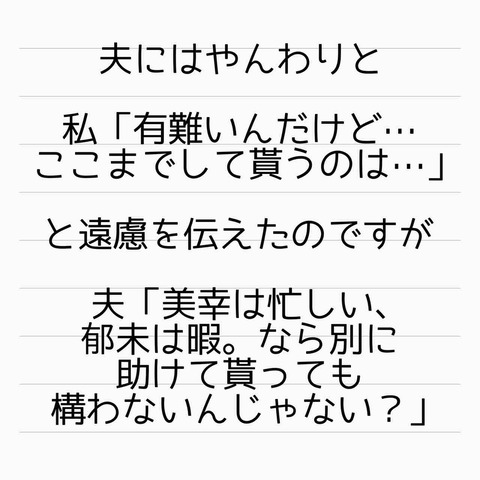 夫にはやんわりと
私「有難いんだけど…
ここまでして貰うのは…」
と遠慮を伝えたのですが
夫「美幸は忙しい、
郁未は暇。なら別に
助けて貰っても
構わないんじゃない？」